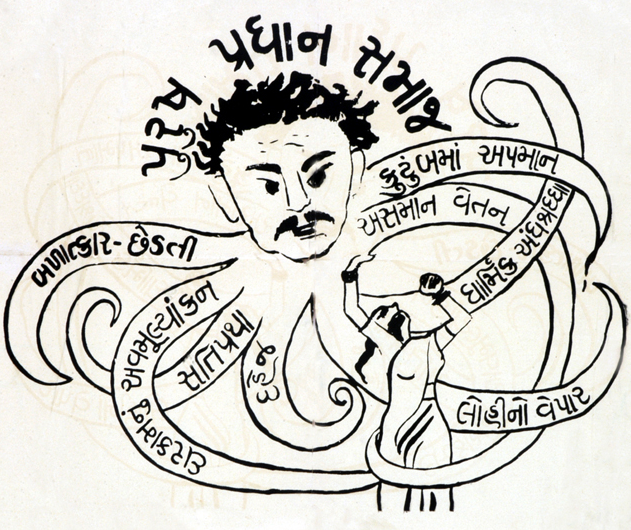 પુરુષ પ્રધાન સમાજ
કુટુંબમાં અપમાન
અસમાન વેતન
ધાર્મિક અંધશ્રધ્ધા
બળાત્કાર-છેડતી
ઘરકામનું અવમૂલ્યાંકન
સતિપ્રથા
દહેજ
લોહીનો વેપાર